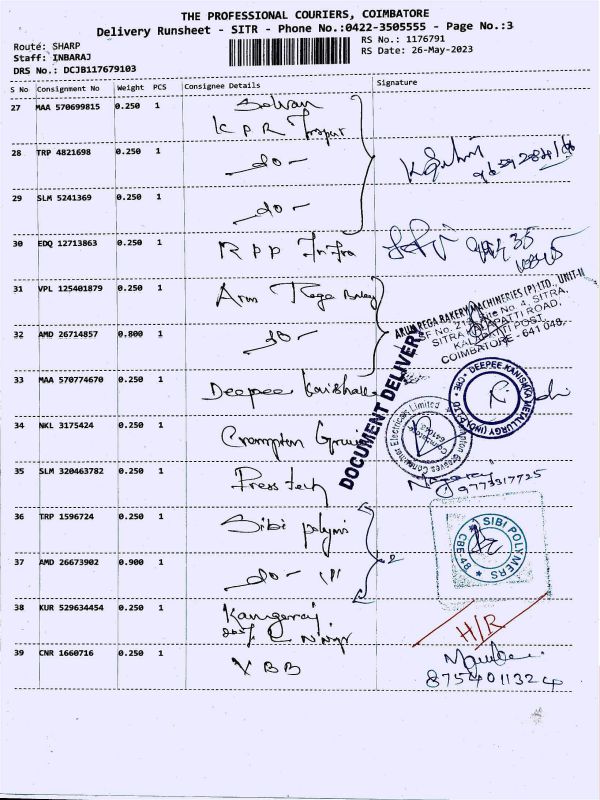 THE PROFESSIONAL COURIERS, COIMBATORE
Delivery Runsheet - SITR - Phone No.:0422-3505555 - Page No.:3
Route: SHARP
RS No.: 1176791
Staff: INBARAJ
RS Date: 26-May-2023
DRS No.: DCJB117679103
S No Consignment No Weight PCS Consignee Details Signature
27 MAA 570699815 0.250 1 Selvan
K P R
28 TRP 4821698 0.250 1 - do -
29 SLM 5241369 0.250 1 - do -
30 EDQ 12713863 0.250 1 R P P Infra
31 VPL 125401879 0.250 1 Arun Rega Bakey
32 AMD 26714857 0.800 1 - do -
ARUN REGA BAKERY MACHINERIES (P) LTD., UNIT-II
SITRA KALAPATTI ROAD,
KALAPATTI POST,
COIMBATORE - 641 048.
DOCUMENT DELIVERY
33 MAA 570774670 0.250 1 Deepee
DEEPEE KANISHKA METALLURGY (IND) P LTD * CBE *
34 NKL 3175424 0.250 1 Crompton
Crompton Greaves Consumer Electricals Limited
Coimbatore
35 SLM 320463782 0.250 1 Press tech
9773317725
36 TRP 1596724 0.250 1 Sibi
37 AMD 26673902 0.900 1 - do - 2
SIBI POLYMERS * CBE
38 KUR 529634454 0.250 1
H/R
39 CNR 1660716 0.250 1 V B B
8754011324